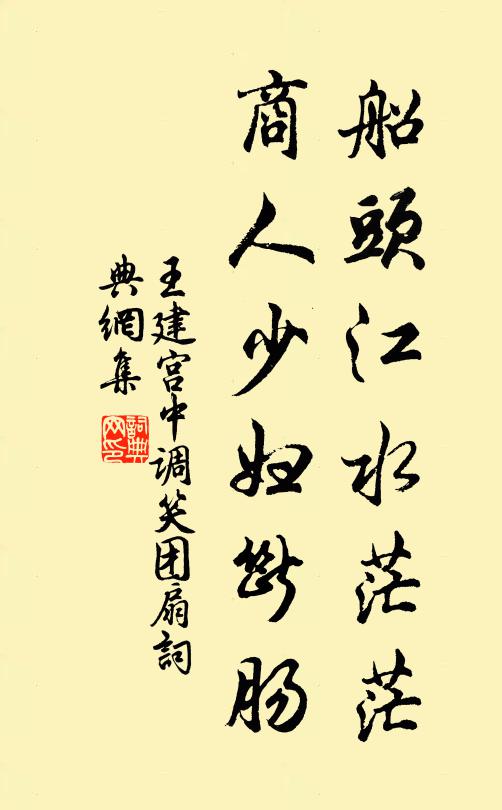 船頭江水茫茫
商人少妇斷肠
王建宫中调笑团扇詞
典網集
詞典网印